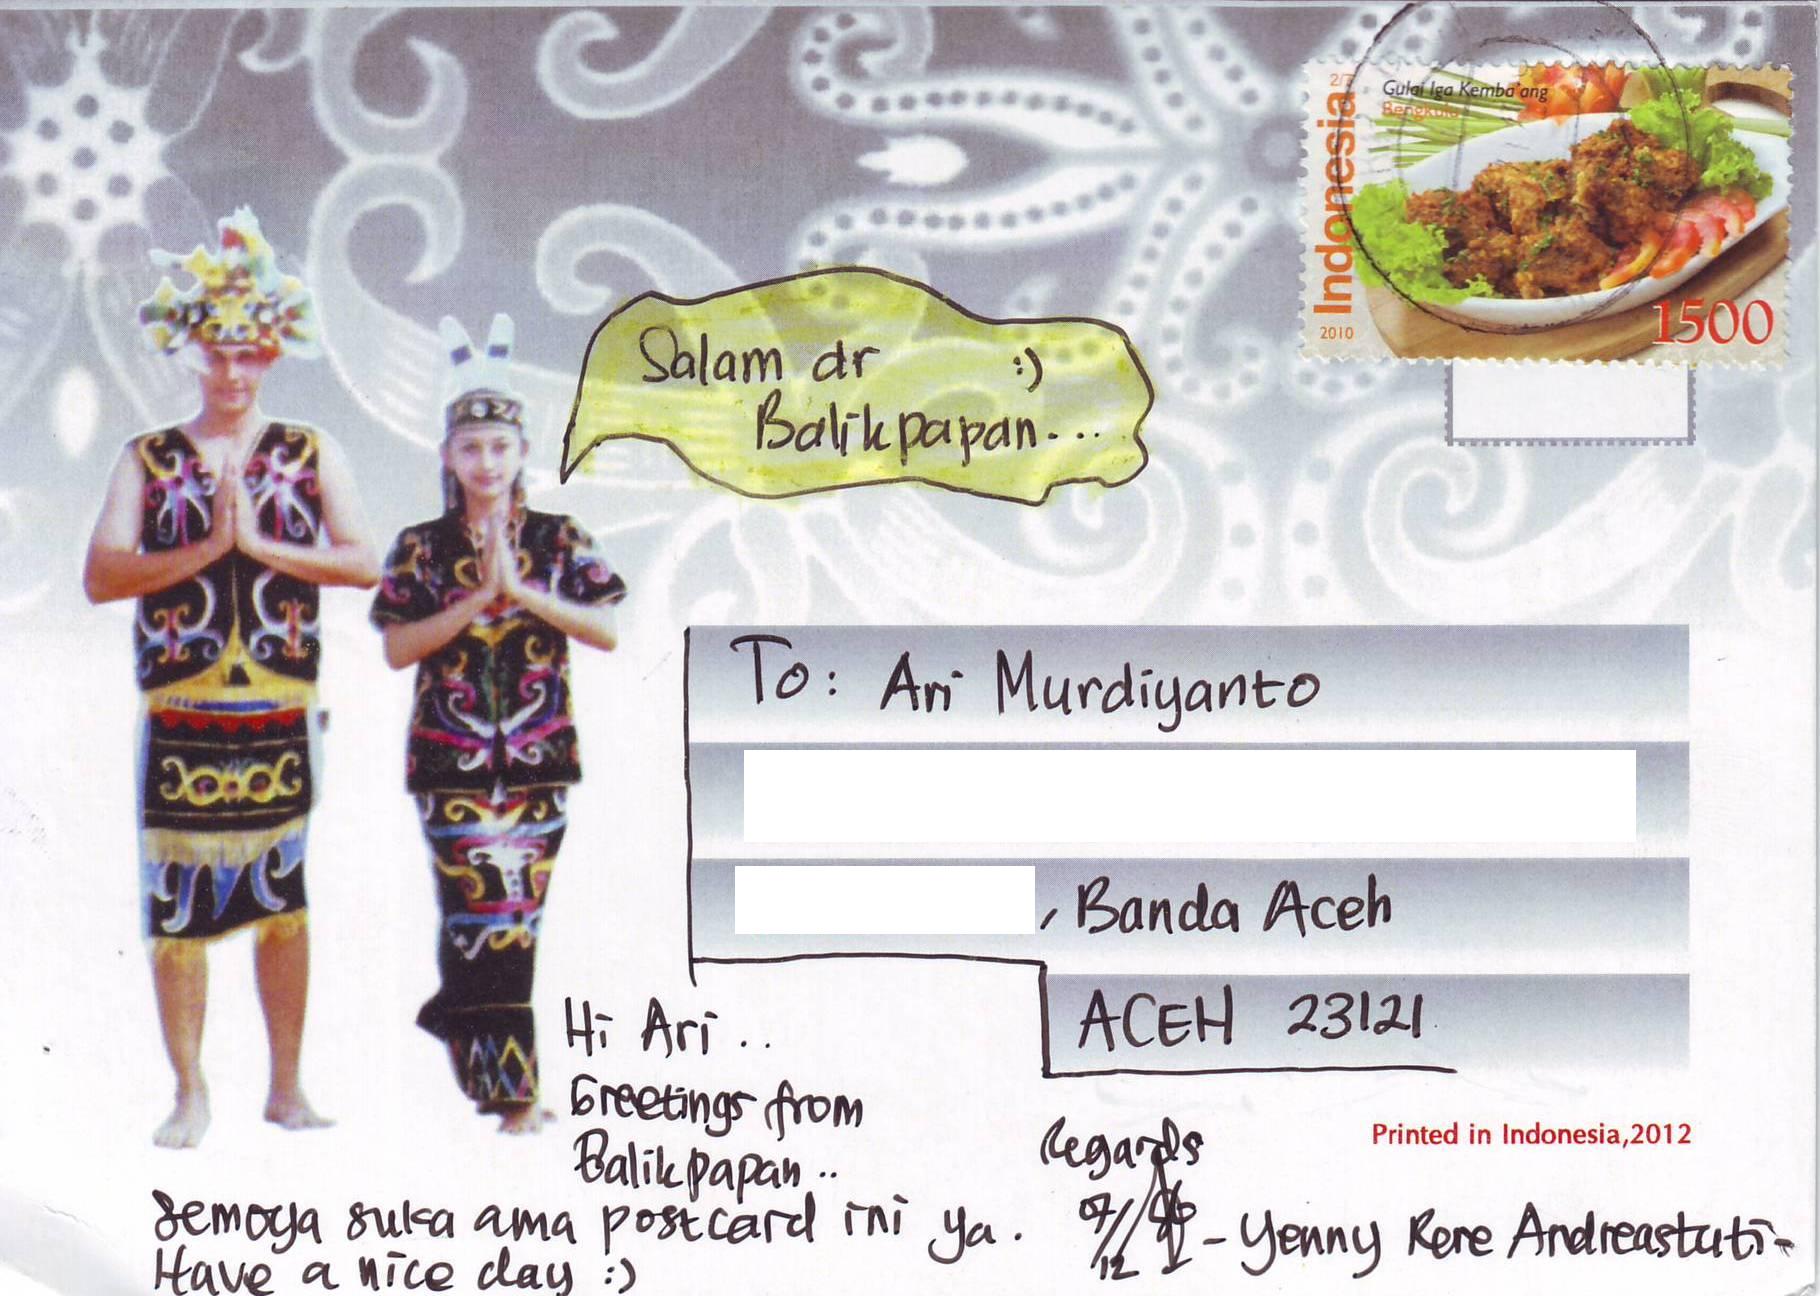 2/7
Gulai Iga Kemba'ang
Bengkulu
Indonesia
2010
1500
Salam dr :)
Balikpapan...
To: Ari Murdiyanto
, Banda Aceh
ACEH 23121
Hi Ari ..
Greetings from
Balikpapan ..
Semoga suka ama postcard ini ya.
Have a nice day :)
Printed in Indonesia,2012
Regards
07/12
- Yenny Rere Andreastuti -